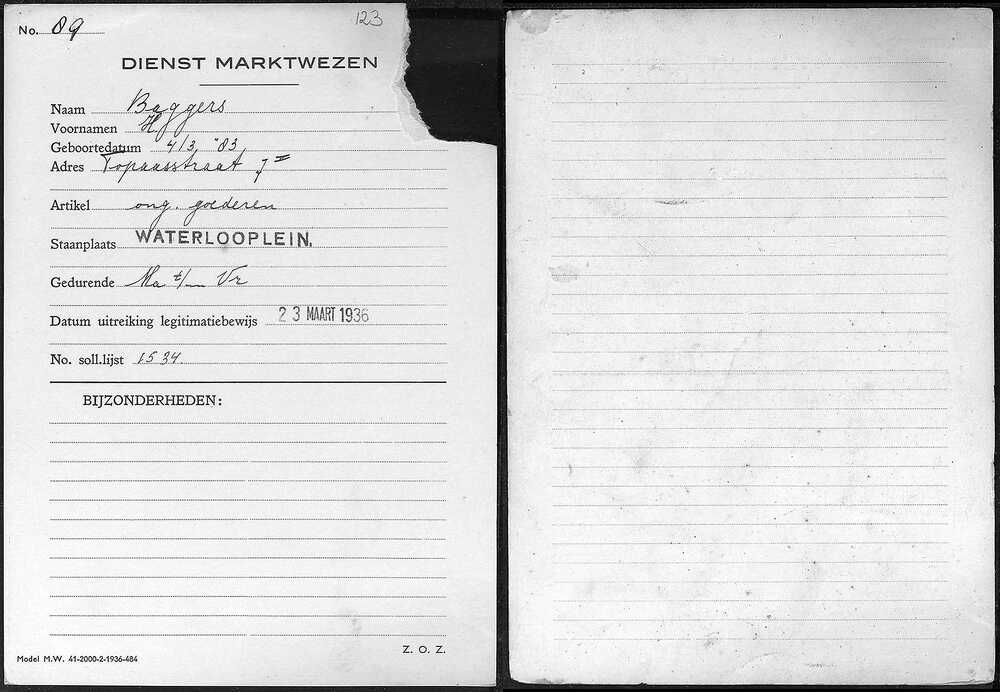 No. 89
123
DIENST MARKTWEZEN
Naam Baggers
Voornamen H
Geboortedatum 4/3 '83
Adres Topaasstraat 7 II
Artikel ong. goederen
Staanplaats WATERLOOPLEIN.
Gedurende Ma t/m Vr
Datum uitreiking legitimatiebewijs 23 MAART 1936
No. soll.lijst 1534.
BIJZONDERHEDEN:
Z. O. Z.
Model M.W. 41-2000-2-1936-484